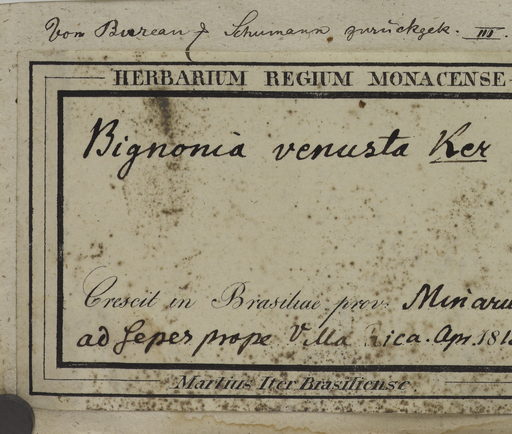 Von Bureau & Schumann zurückgek. III.
HERBARIUM REGIUM MONACENSE
Bignonia venusta Ker
Crescit in Brasiliae prov. Minaru
ad sepes prope Villa Rica. Apr. 181
Martius Iter Brasiliense.